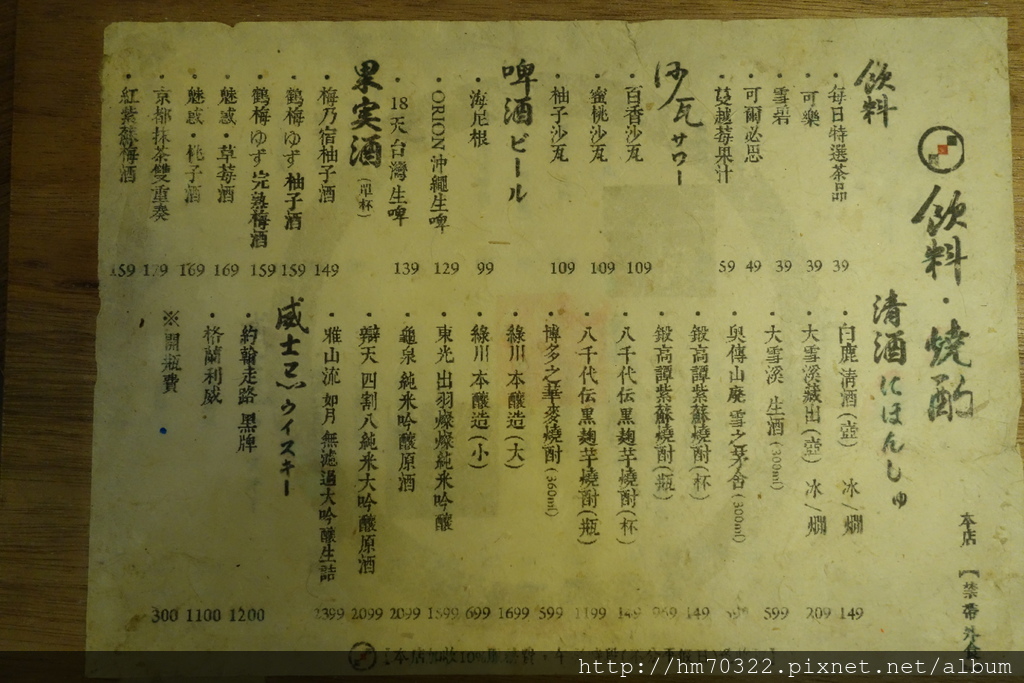 飲料・燒酌
本店 【禁帶外食
飲料
・每日特選茶品 39
・可樂 39
・雪碧 39
・可爾必思 49
・蔓越莓果汁 59
沙瓦 サワー
・百香沙瓦 109
・蜜桃沙瓦 109
・柚子沙瓦 109
啤酒 ビール
・海尼根 99
・ORION 沖繩生啤 129
・18天台灣生啤 139
果実酒 (單杯)
・梅乃宿柚子酒 149
・鶴梅ゆず 柚子酒 159
・鶴梅ゆず 完熟梅酒 159
・魅惑・草莓酒 169
・魅惑・桃子酒 169
・京都抹茶雙重奏 179
・紅紫蘇梅酒 159
清酒 にほんしゅ
・白鹿 清酒(壺) 冰/燗 149
・大雪溪藏出(壺) 冰/燗 209
・大雪溪 生酒(300ml) 599
・與傳山廢 雪之茅舍(300ml)
・鍛高譚紫蘇燒酎(杯) 149
・鍛高譚紫蘇燒酎(瓶)
・八千代伝黒麹芋燒酎(杯) 149
・八千代伝黒麹芋燒酎(瓶) 1199
・博多之華麥燒酎(360ml) 599
・綠川 本釀造(大) 1699
・綠川 本釀造(小) 699
・東光 出羽燦燦純米吟釀 1599
・龜泉 純米吟釀原酒 2099
・辯天 四割八純米大吟釀原酒 2099
・雅山流 如月 無濾過大吟釀生詰 2399
威士忌 ウイスキー
・約翰走路 黑牌 1200
・格蘭利威 1100
※開瓶費 300
http://hm70322.pixnet.net/album